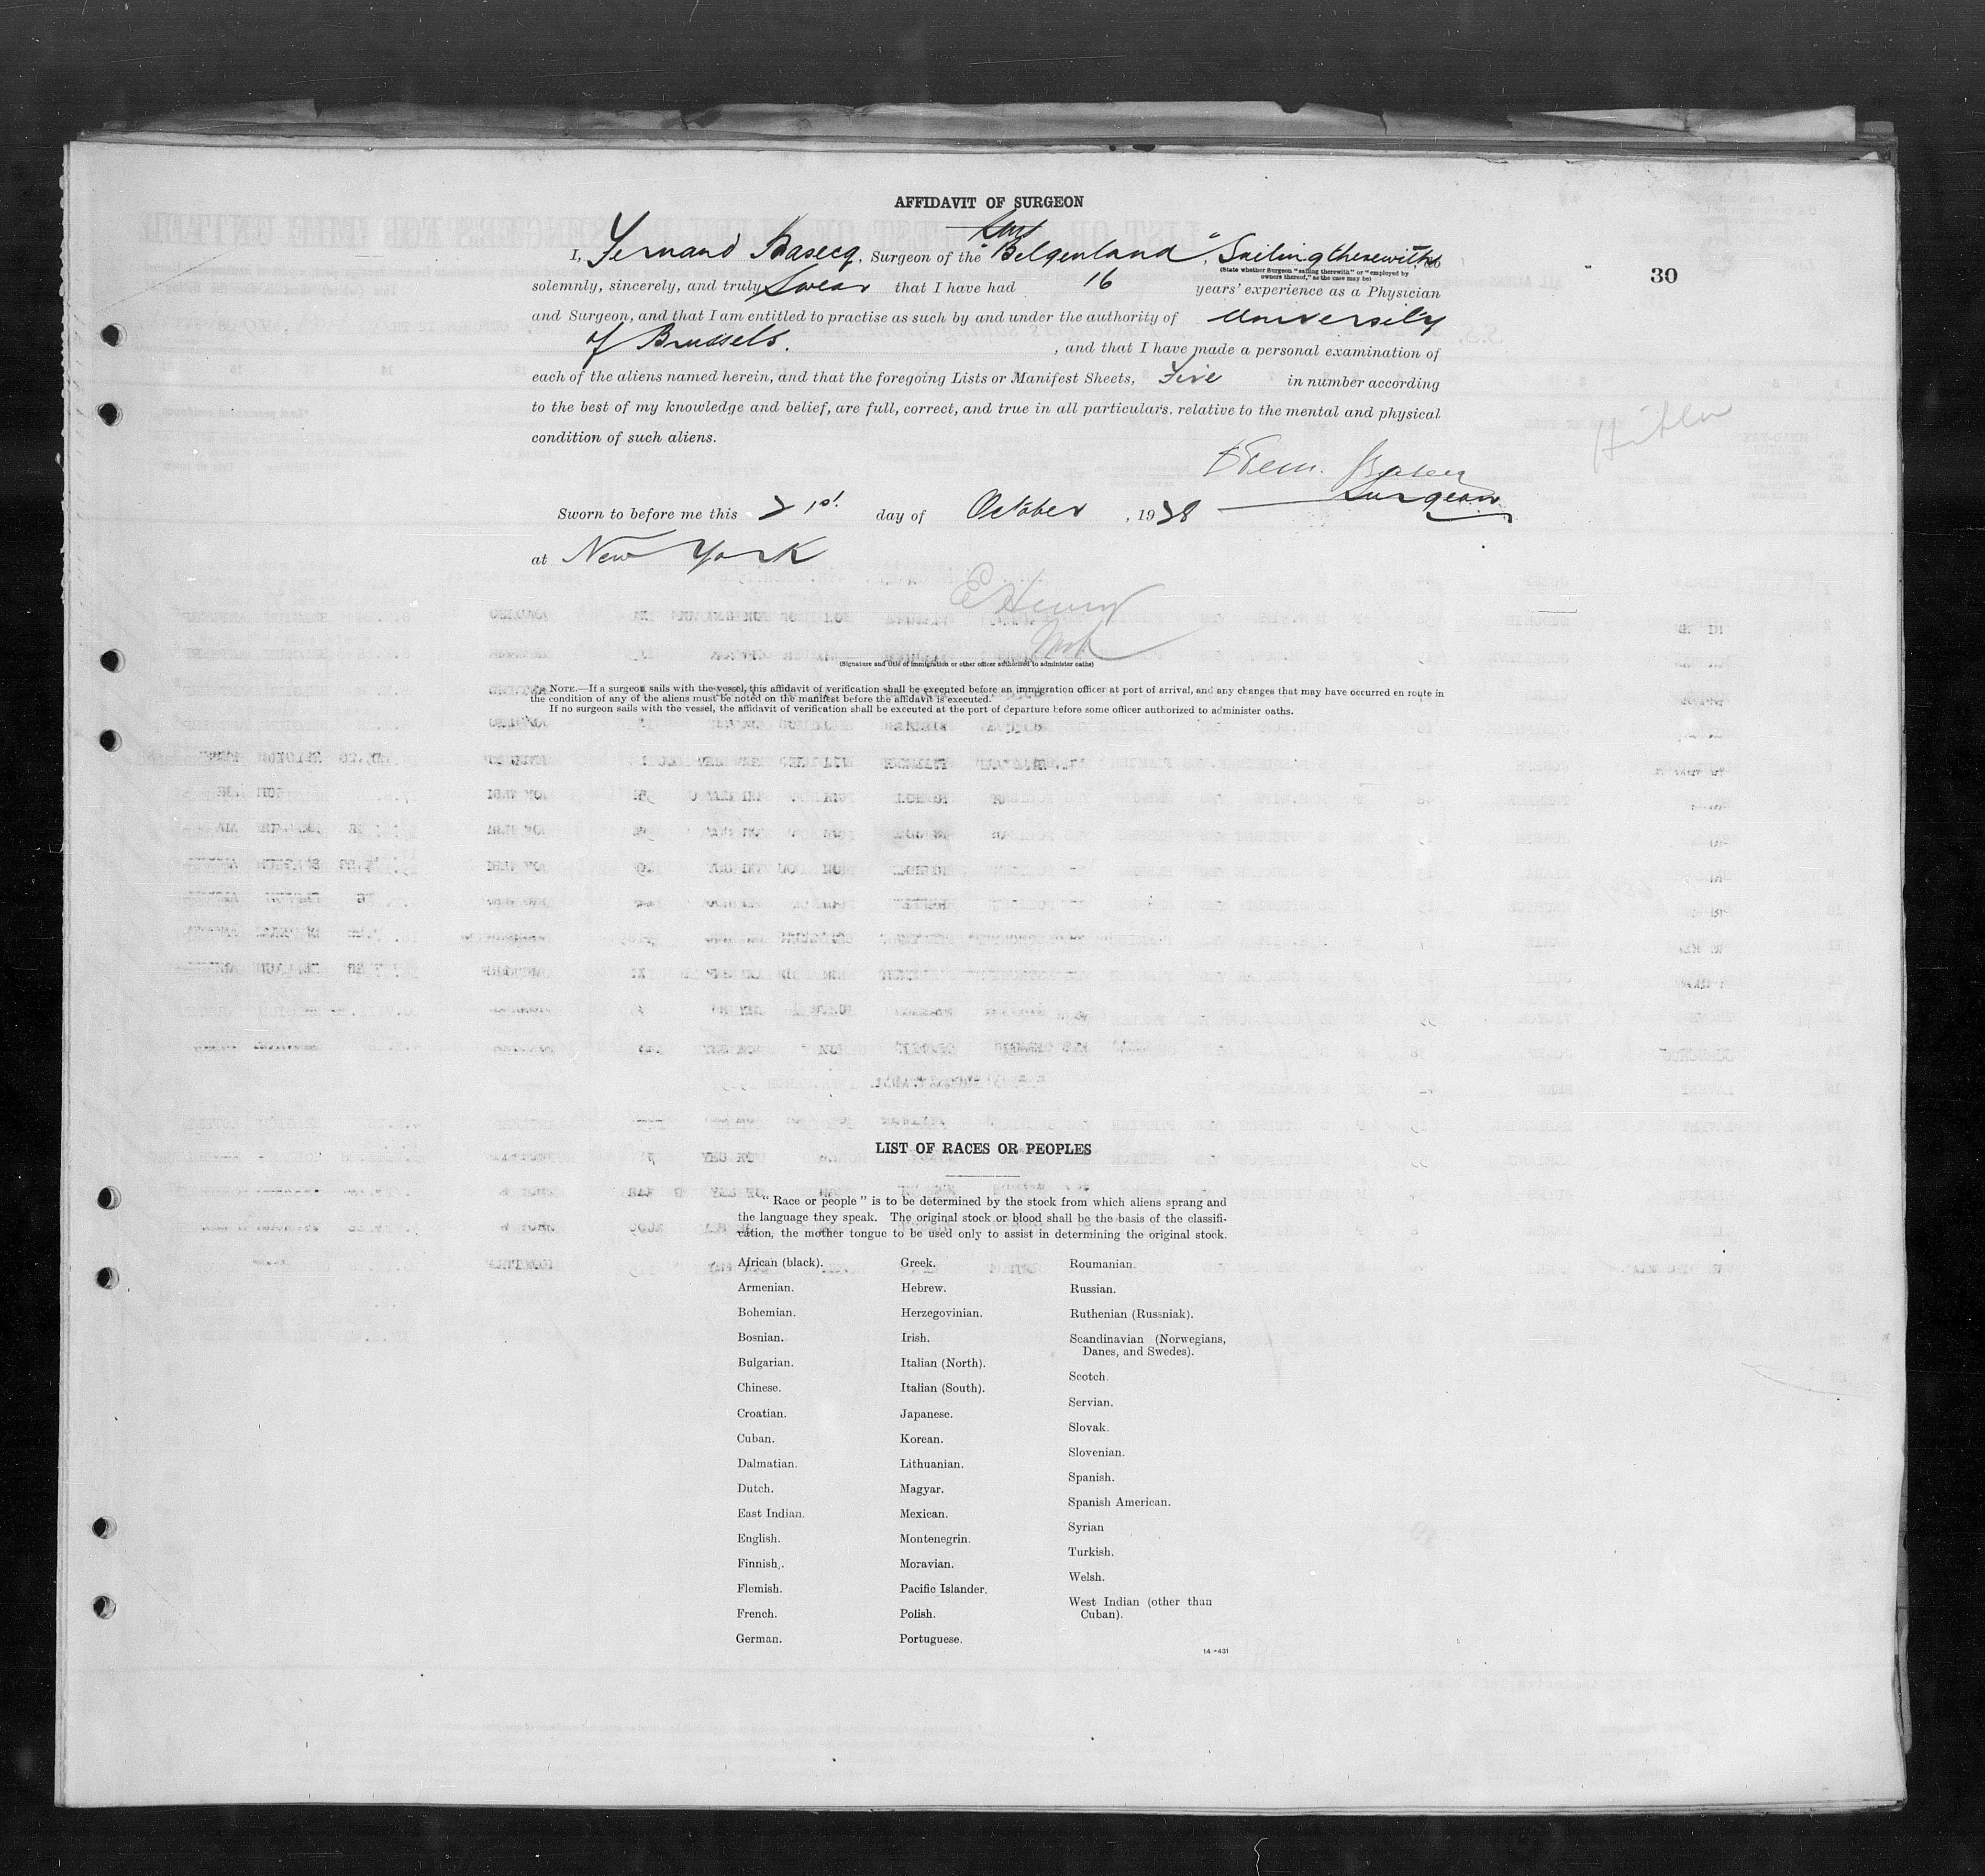 AFFIDAVIT OF SURGEON
30
I, Fernand Basecq, Surgeon of the "Belgenland", Sailing therewith, do
(State whether Surgeon "sailing therewith" or "employed by
owners thereof," as the case may be)
solemnly, sincerely, and truly Swear that I have had 16 years' experience as a Physician
and Surgeon, and that I am entitled to practise as such by and under the authority of University
of Brussels. , and that I have made a personal examination of
each of the aliens named herein, and that the foregoing Lists or Manifest Sheets, Five in number according
to the best of my knowledge and belief, are full, correct, and true in all particulars. relative to the mental and physical
condition of such aliens.
Surgeon
Sworn to before me this 21st day of October , 1928
at New York
E Henry
(Signature and title of immigration or other officer authorized to administer oaths)
NOTE.—If a surgeon sails with the vessel, this affidavit of verification shall be executed before an immigration officer at port of arrival, and any changes that may have occurred en route in
the condition of any of the aliens must be noted on the manifest before the affidavit is executed.
If no surgeon sails with the vessel, the affidavit of verification shall be executed at the port of departure before some officer authorized to administer oaths.
LIST OF RACES OR PEOPLES
"Race or people" is to be determined by the stock from which aliens sprang and
the language they speak. The original stock or blood shall be the basis of the classifi-
cation, the mother tongue to be used only to assist in determining the original stock.
African (black).
Armenian.
Bohemian.
Bosnian.
Bulgarian.
Chinese.
Croatian.
Cuban.
Dalmatian.
Dutch.
East Indian.
English.
Finnish.
Flemish.
French.
German.
Greek.
Hebrew.
Herzegovinian.
Irish.
Italian (North).
Italian (South).
Japanese.
Korean.
Lithuanian.
Magyar.
Mexican.
Montenegrin.
Moravian.
Pacific Islander.
Polish.
Portuguese.
Roumanian.
Russian.
Ruthenian (Russniak).
Scandinavian (Norwegians,
Danes, and Swedes).
Scotch.
Servian.
Slovak.
Slovenian.
Spanish.
Spanish American.
Syrian
Turkish.
Welsh.
West Indian (other than
Cuban).
14—431